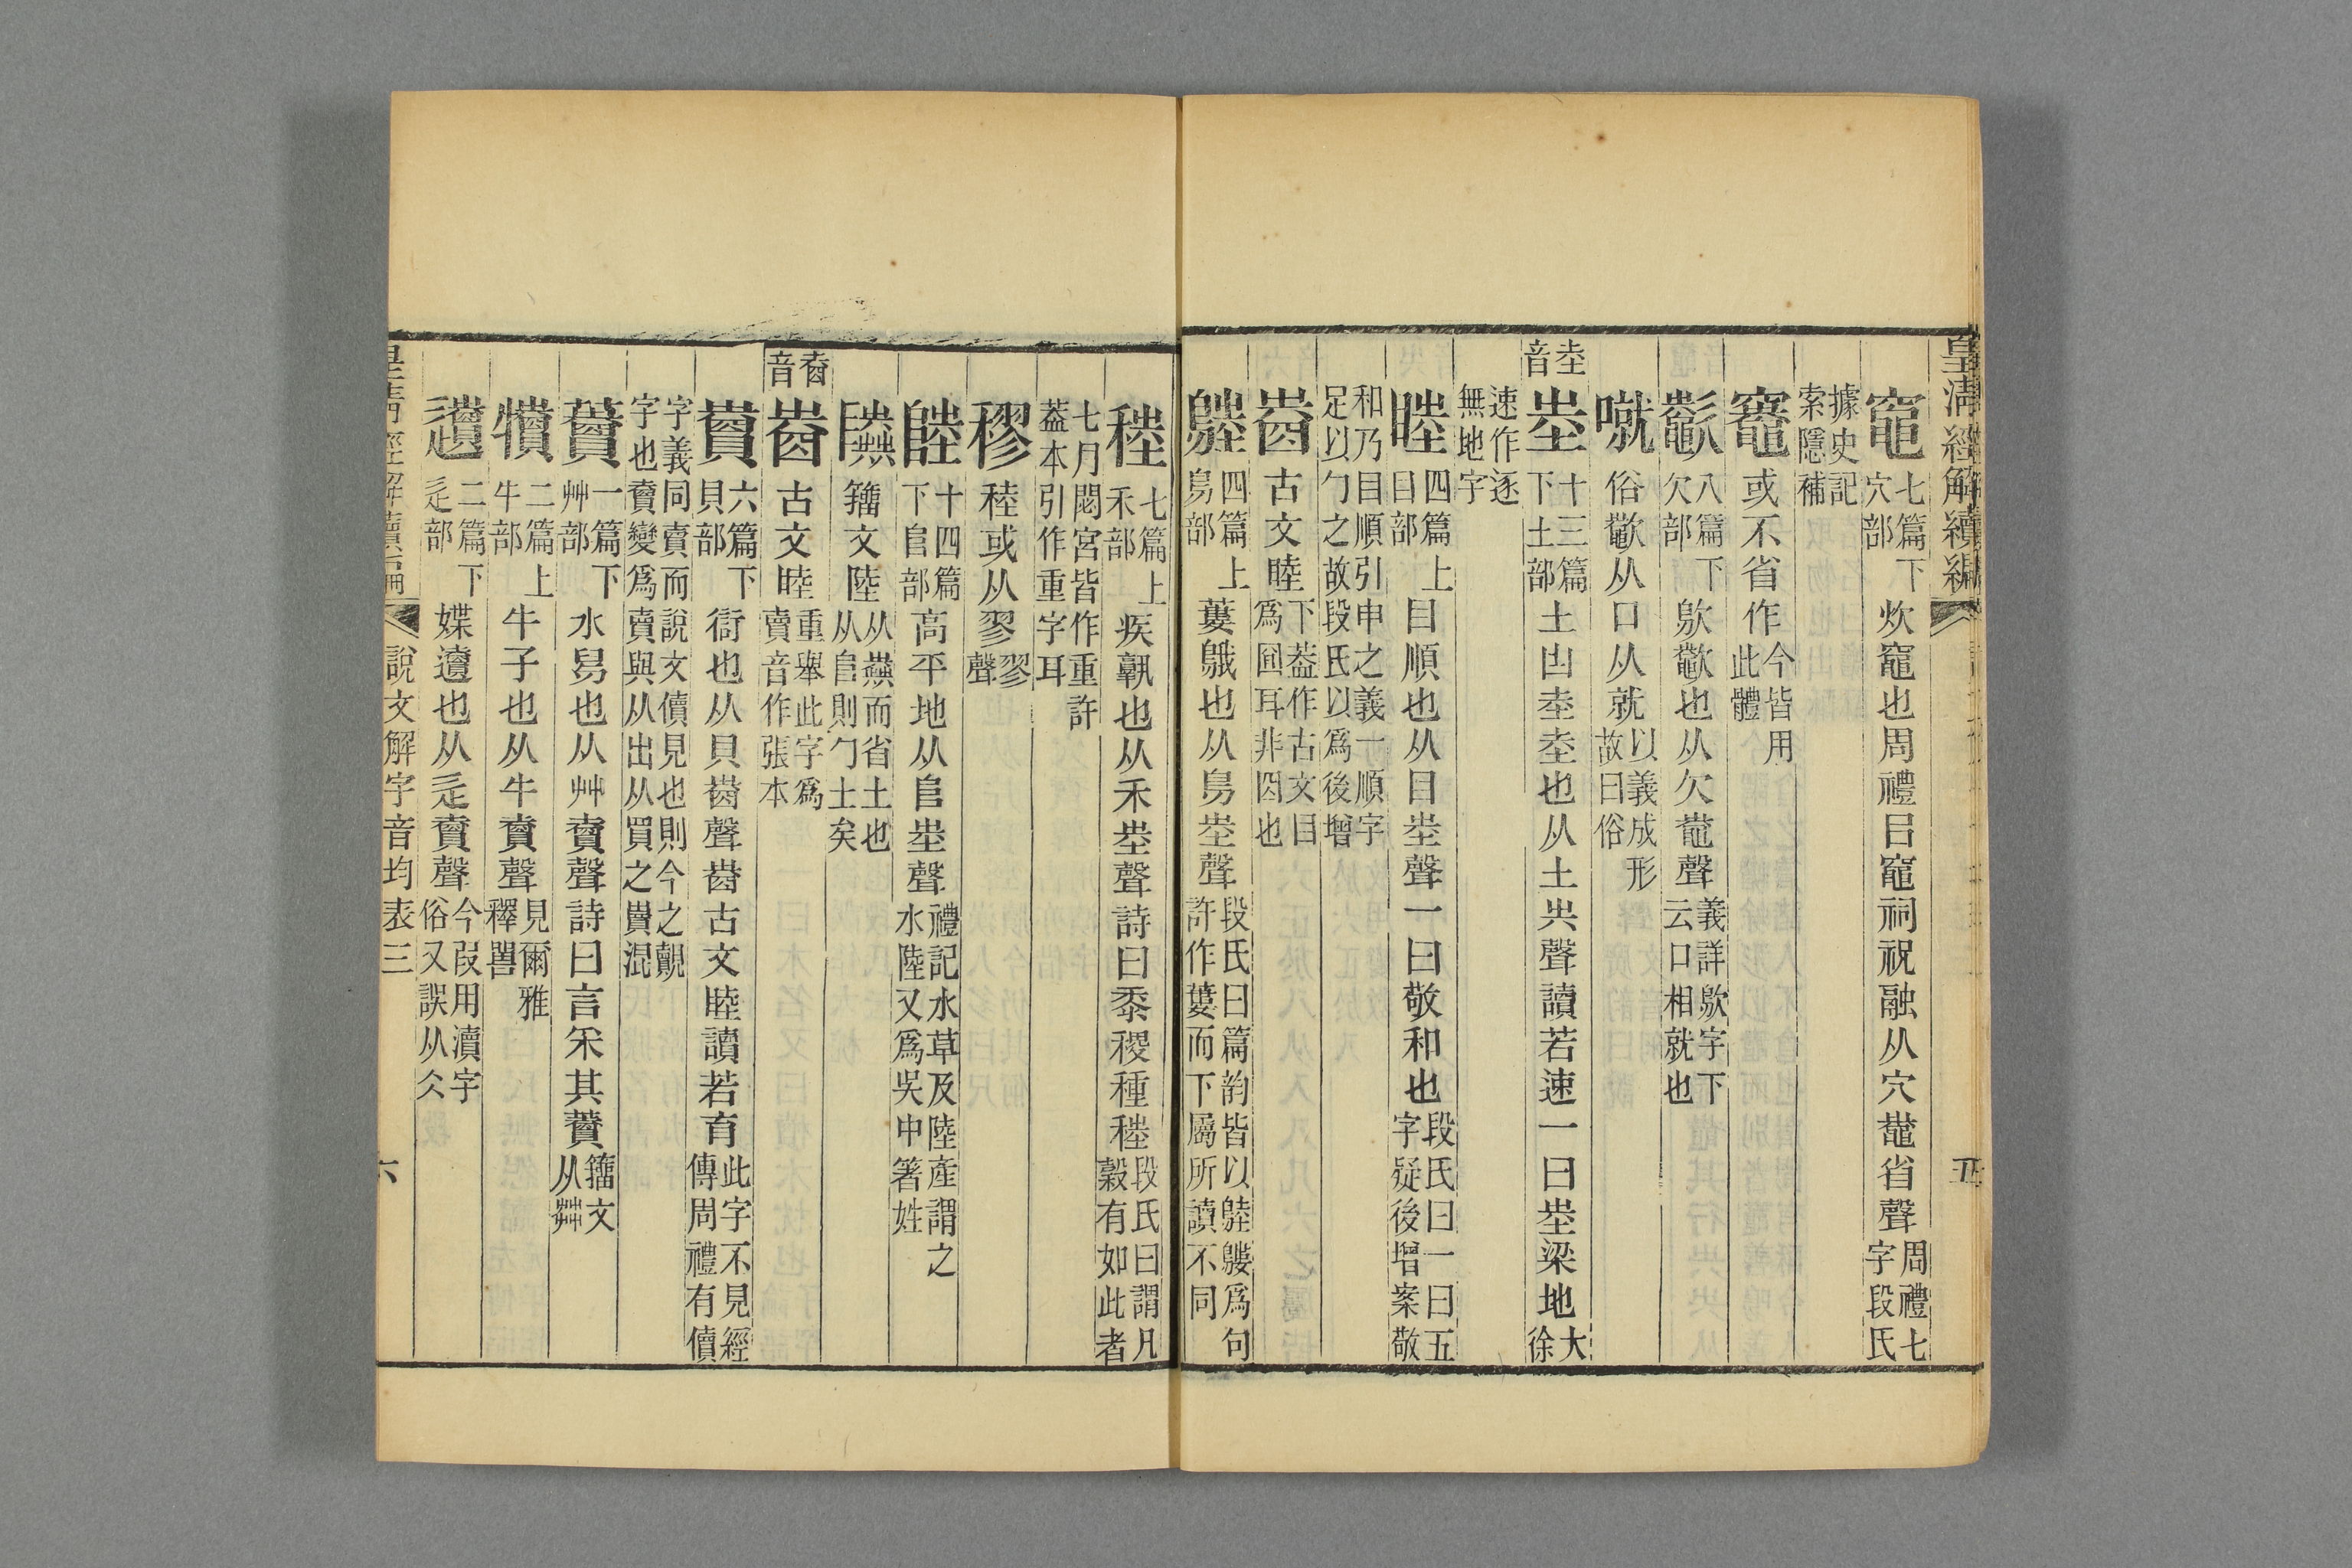 皇清經解續編
五
竈 七篇下穴部 炊竈也周禮㠯竈祠祝融从穴鼀省聲 周禮七字段氏
據史記索隱補
竈 或不省作 今皆用此體
歠 八篇下欠部 歍歠也从欠鼀聲 義詳歍字下云口相就也
噈 俗歠从口从就 以義成形故曰俗
坴音
坴 十三篇下土部 土凷坴坴也从土圥聲讀若速一曰坴梁地 大徐
速作逐無地字
睦 四篇上目部 目順也从目坴聲一曰敬和也 段氏曰一曰五字疑後增案敬
和乃目順引申之義一順字足以勹之故段氏以爲後增
𡴊 古文睦 下葢作古文目爲囧耳非囧也
鵱 四篇上鳥部 蔞鵝也从鳥坴聲 段氏曰篇韵皆以鵱鷜爲句許作蔞而下屬所讀不同
稑 七篇上禾部 疾孰也从禾坴聲詩曰黍稷種稑 段氏曰謂凡穀有如此者
七月閟宮皆作重許葢本引作重字耳
穋 稑或从翏 翏聲
陸 十四篇下𨸏部 高平地从𨸏坴聲 禮記水草及陸產謂之水陸又爲吳中著姓
籒文陸 而省土也从𨸏則勹土矣
𧶠音
𡴊 古文睦 重舉此字爲賣音作張本
𧶠 六篇下貝部 衒也从貝𡴊聲𡴊古文睦讀若育 此字不見經傳周禮有儥
字義同賣而說文儥見也則今之覿字也𧶠變爲賣與从出从買之賣混
藚 一篇下艸部 水舄也从艸𧶠聲詩曰言采其藚 籒文从茻
犢 二篇上牛部 牛子也从牛𧶠聲 見爾雅釋嘼
遺 二篇下辵部 媟遺也从辵𧶠聲 今叚用瀆字俗又誤从夊
說文解字音均表三
六